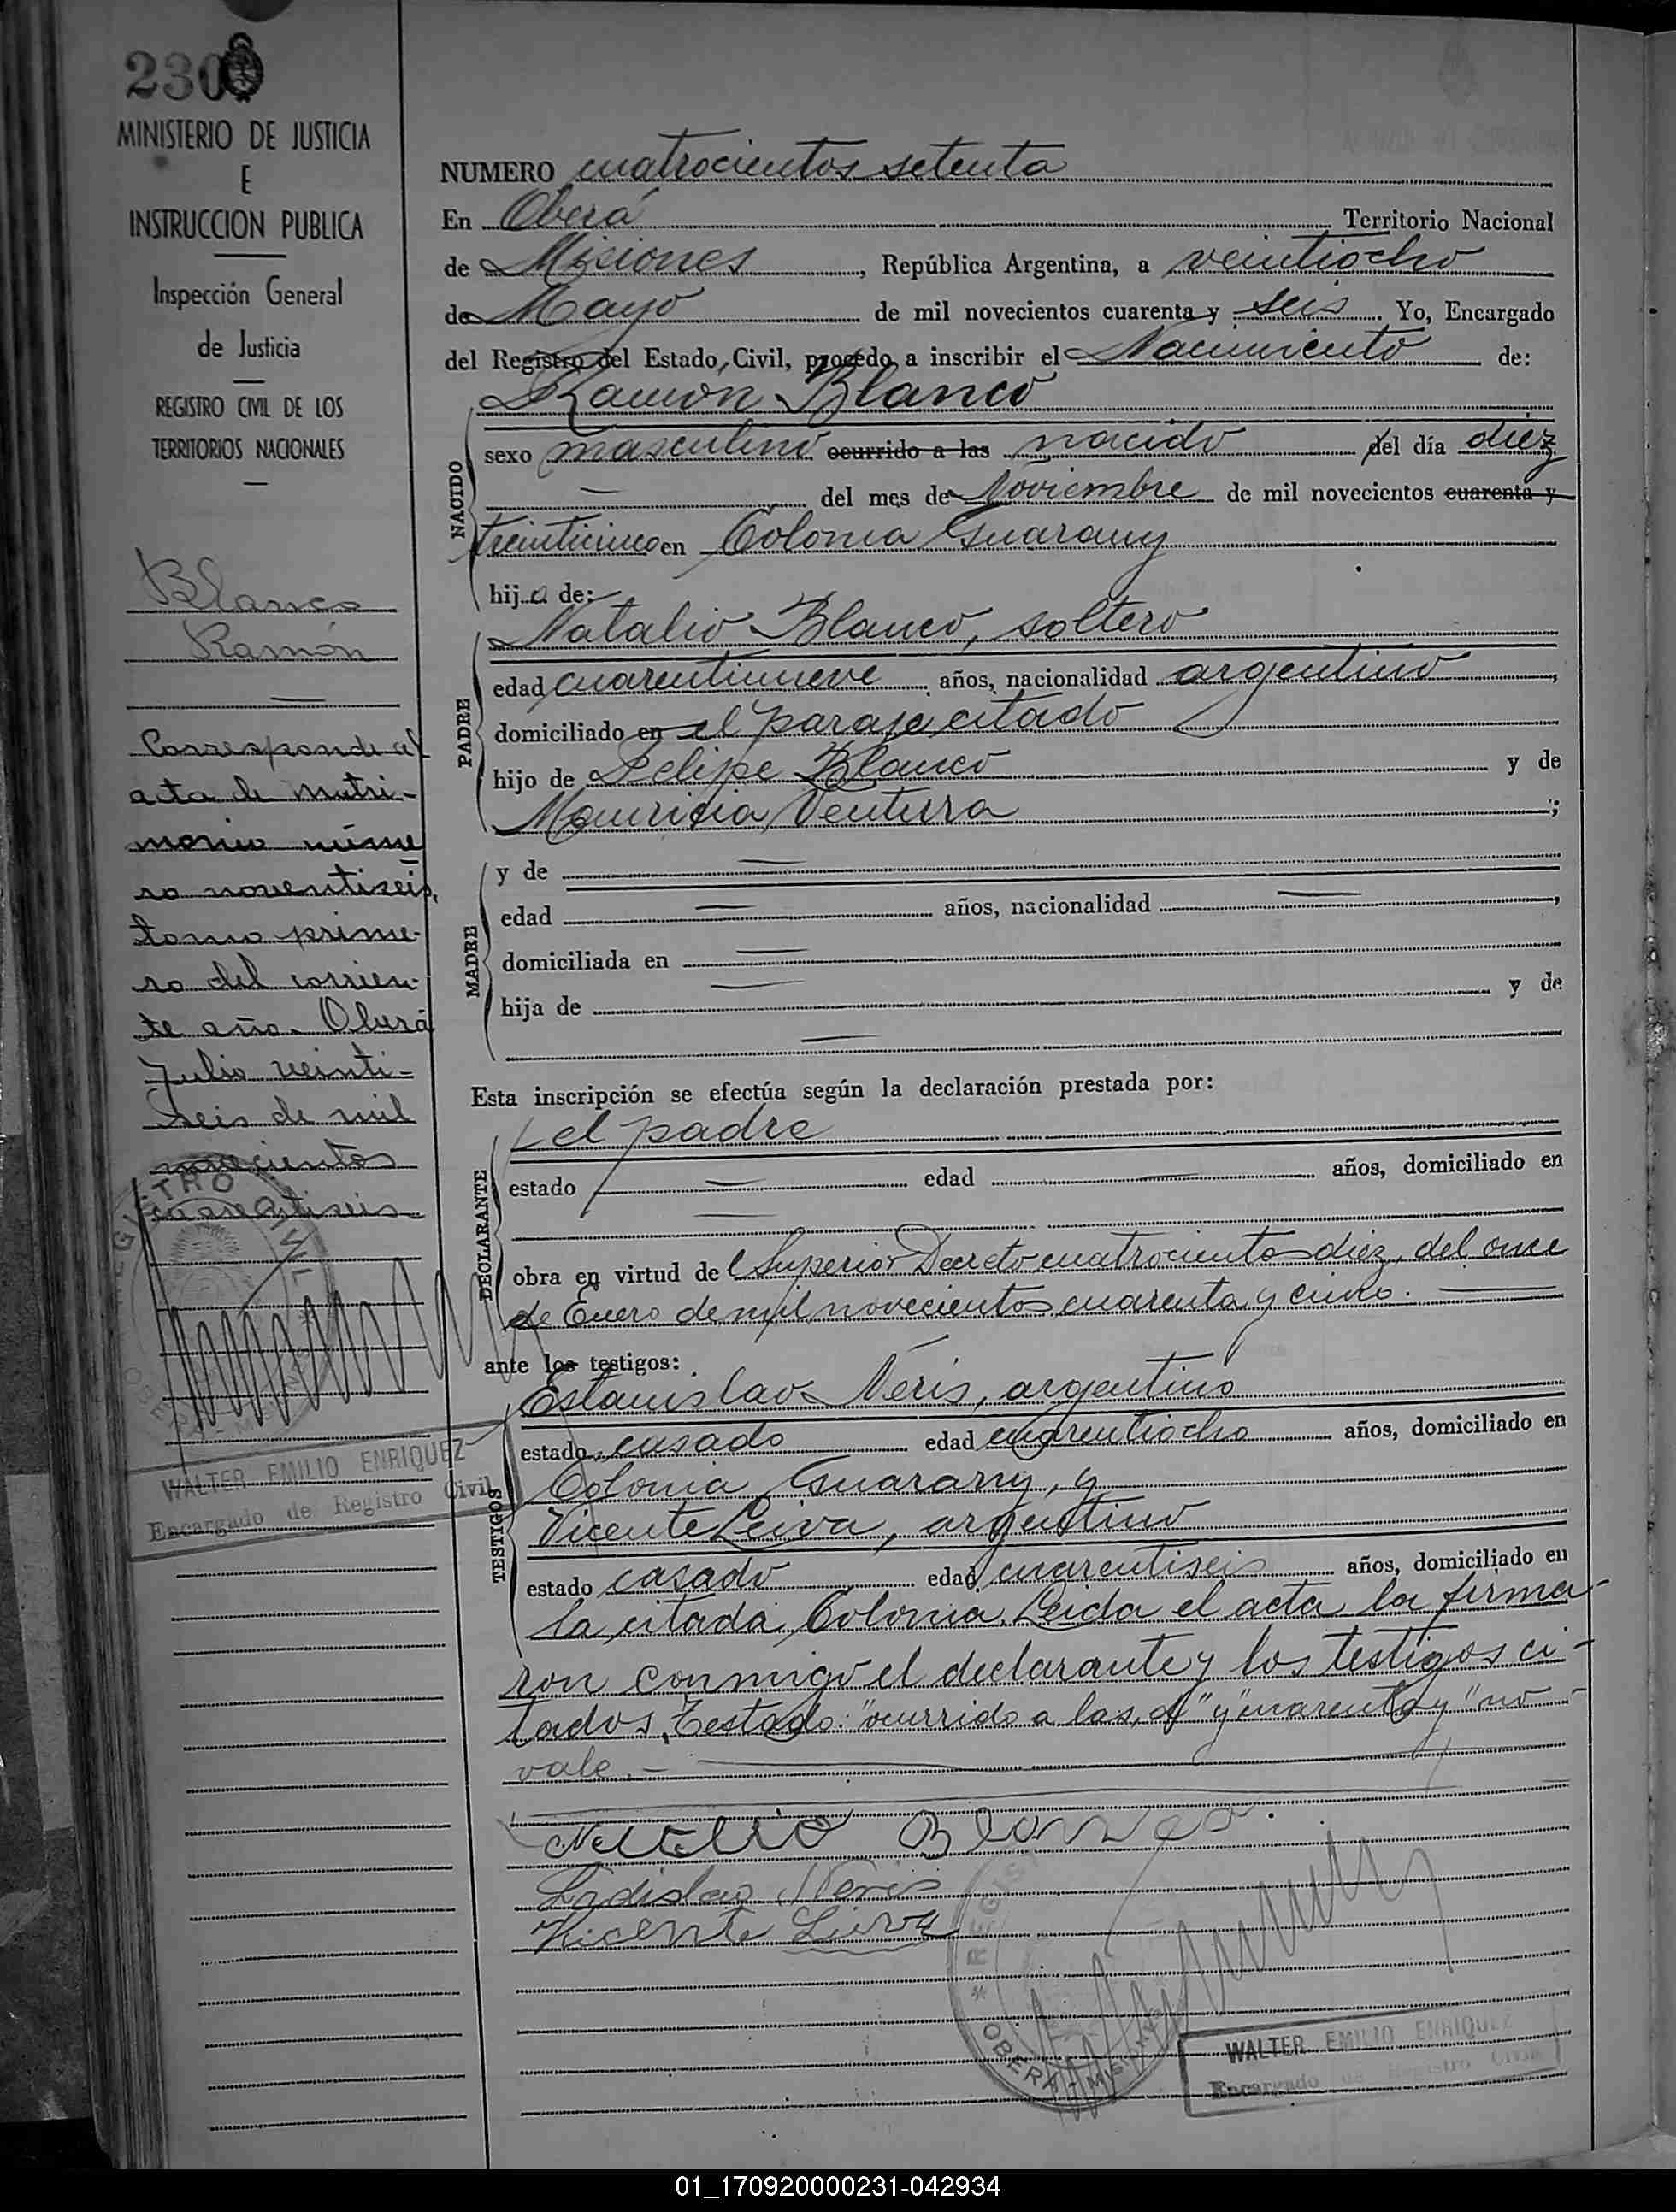 230
MINISTERIO DE JUSTICIA
E
INSTRUCCION PUBLICA
Inspección General
de Justicia
REGISTRO CIVIL DE LOS
TERRITORIOS NACIONALES
Blanco
Ramón
Corresponde al
acta de matri-
monio núme
ro noventiseis,
tomo prime-
ro del corrien-
te año. Oberá
Julio veinti-
seis de mil
novecientos
cuarentiseis
WALTER EMILIO ENRIQUEZ
Encargado de Registro Civil
NUMERO cuatrocientos setenta
En Oberá Territorio Nacional
de Misiones, República Argentina, a veintiocho
de Mayo de mil novecientos cuarenta y seis. Yo, Encargado
del Registro del Estado Civil, procedo a inscribir el Nacimiento de:
Ramon Blanco
NACIDO
sexo masculino ocurrido a las nacido del día diez
del mes de Noviembre de mil novecientos cuarenta y
treinticinco en Colonia Guarany
hijo de:
PADRE
Natalio Blanco, soltero
edad cuarentinueve años, nacionalidad argentino,
domiciliado en el paraje citado
hijo de Felipe Blanco y de
Mauricia Ventura;
MADRE
y de
edad años, nacionalidad,
domiciliada en
hija de y de
Esta inscripción se efectúa según la declaración prestada por:
DECLARANTE
el padre
estado edad años, domiciliado en
obra en virtud del Superior Decreto cuatrocientos diez, del once
de Enero de mil novecientos cuarenta y cinco.
ante los testigos:
TESTIGOS
Estanislao Neris, argentino
estado casado edad cuarentiocho años, domiciliado en
Colonia Guarany, y
Vicente Leiva, argentino
estado casado edad cuarentiseis años, domiciliado en
la citada Colonia. Leida el acta la firma-
ron conmigo el declarante y los testigos ci-
tados. Testado: "ocurrido a las, d" y "cuarenta y" no
vale.-
Natalio Blanco.
Ladislao Neris
Vicente Leiva
REGIS
OBERA - MISIONES
WALTER EMILIO ENRIQUEZ
Encargado de Registro Civil
01_170920000231-042934